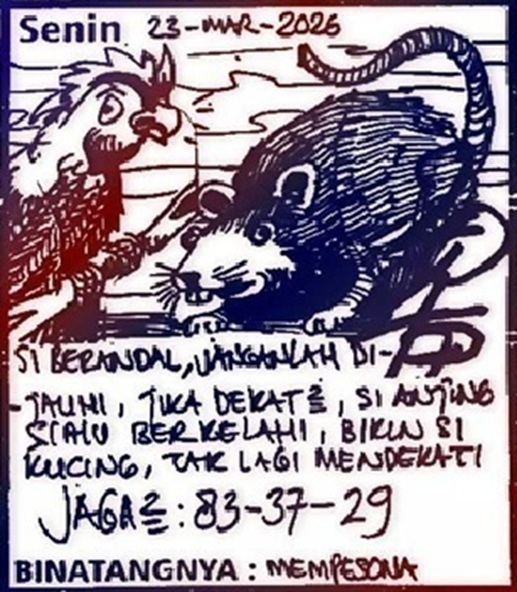 Senin 23-MAR-2026
SI BERANDAL, JANGANLAH DI-
-JAUHI, JIKA DEKAT2, SI ANJING
SLALU BERKELAHI, BIKIN SI
KUCING, TAK LAGI MENDEKATI
JAGA2 : 83-37-29
BINATANGNYA : MEMPESONA